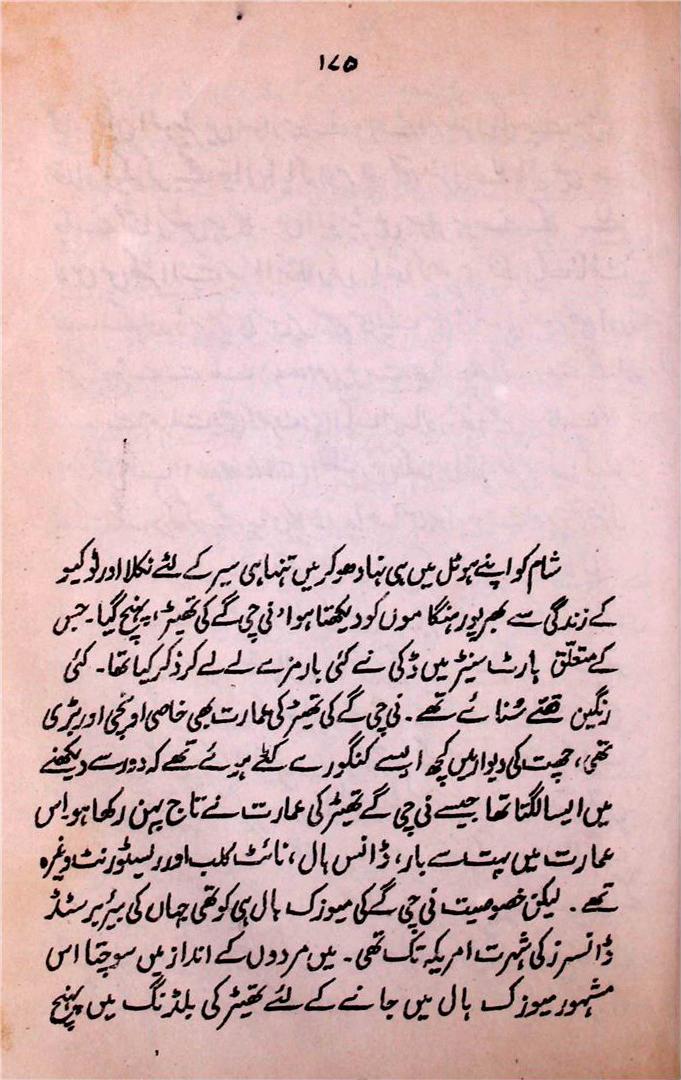 ۱۷۵
شام کو اپنے ہوٹل میں ہی نہا دھو کر میں تنہا ہی سیر کے لئے نکلا اور ٹوکیو
کے زندگی سے بھرپور ہنگاموں کو دیکھتا ہوا، نی چی گے کی تھیٹر، پہنچ گیا۔ جس
کے متعلق ہارٹ سینٹر میں ڈکی نے کئی بار مزے لے لے کر ذکر کیا تھا۔ کئی
رنگین قصّے سُنائے تھے۔ نی چی گے کی تھیٹر کی عمارت بھی خاصی اونچی اور بڑی
تھی، چھت کی دیوار میں کچھ ایسے کنگورے کٹے ہوئے تھے کہ دور سے دیکھنے
میں ایسا لگتا تھا جیسے نی چی گے تھیٹر کی عمارت نے تاج پہن رکھا ہو۔ اس
عمارت میں بہت سے بار، ڈانس ہال، نائٹ کلب اور ریسٹورنٹ وغیرہ
تھے۔ لیکن خصوصیت نی چی گے کی میوزک ہال ہی کو تھی جہاں کی
ڈانسرز کی شہرت امریکہ تک تھی۔ میں مردوں کے انداز میں سوچتا اس
مشہور میوزک ہال میں جانے کے لئے تھیٹر کی بلڈنگ میں پہنچ